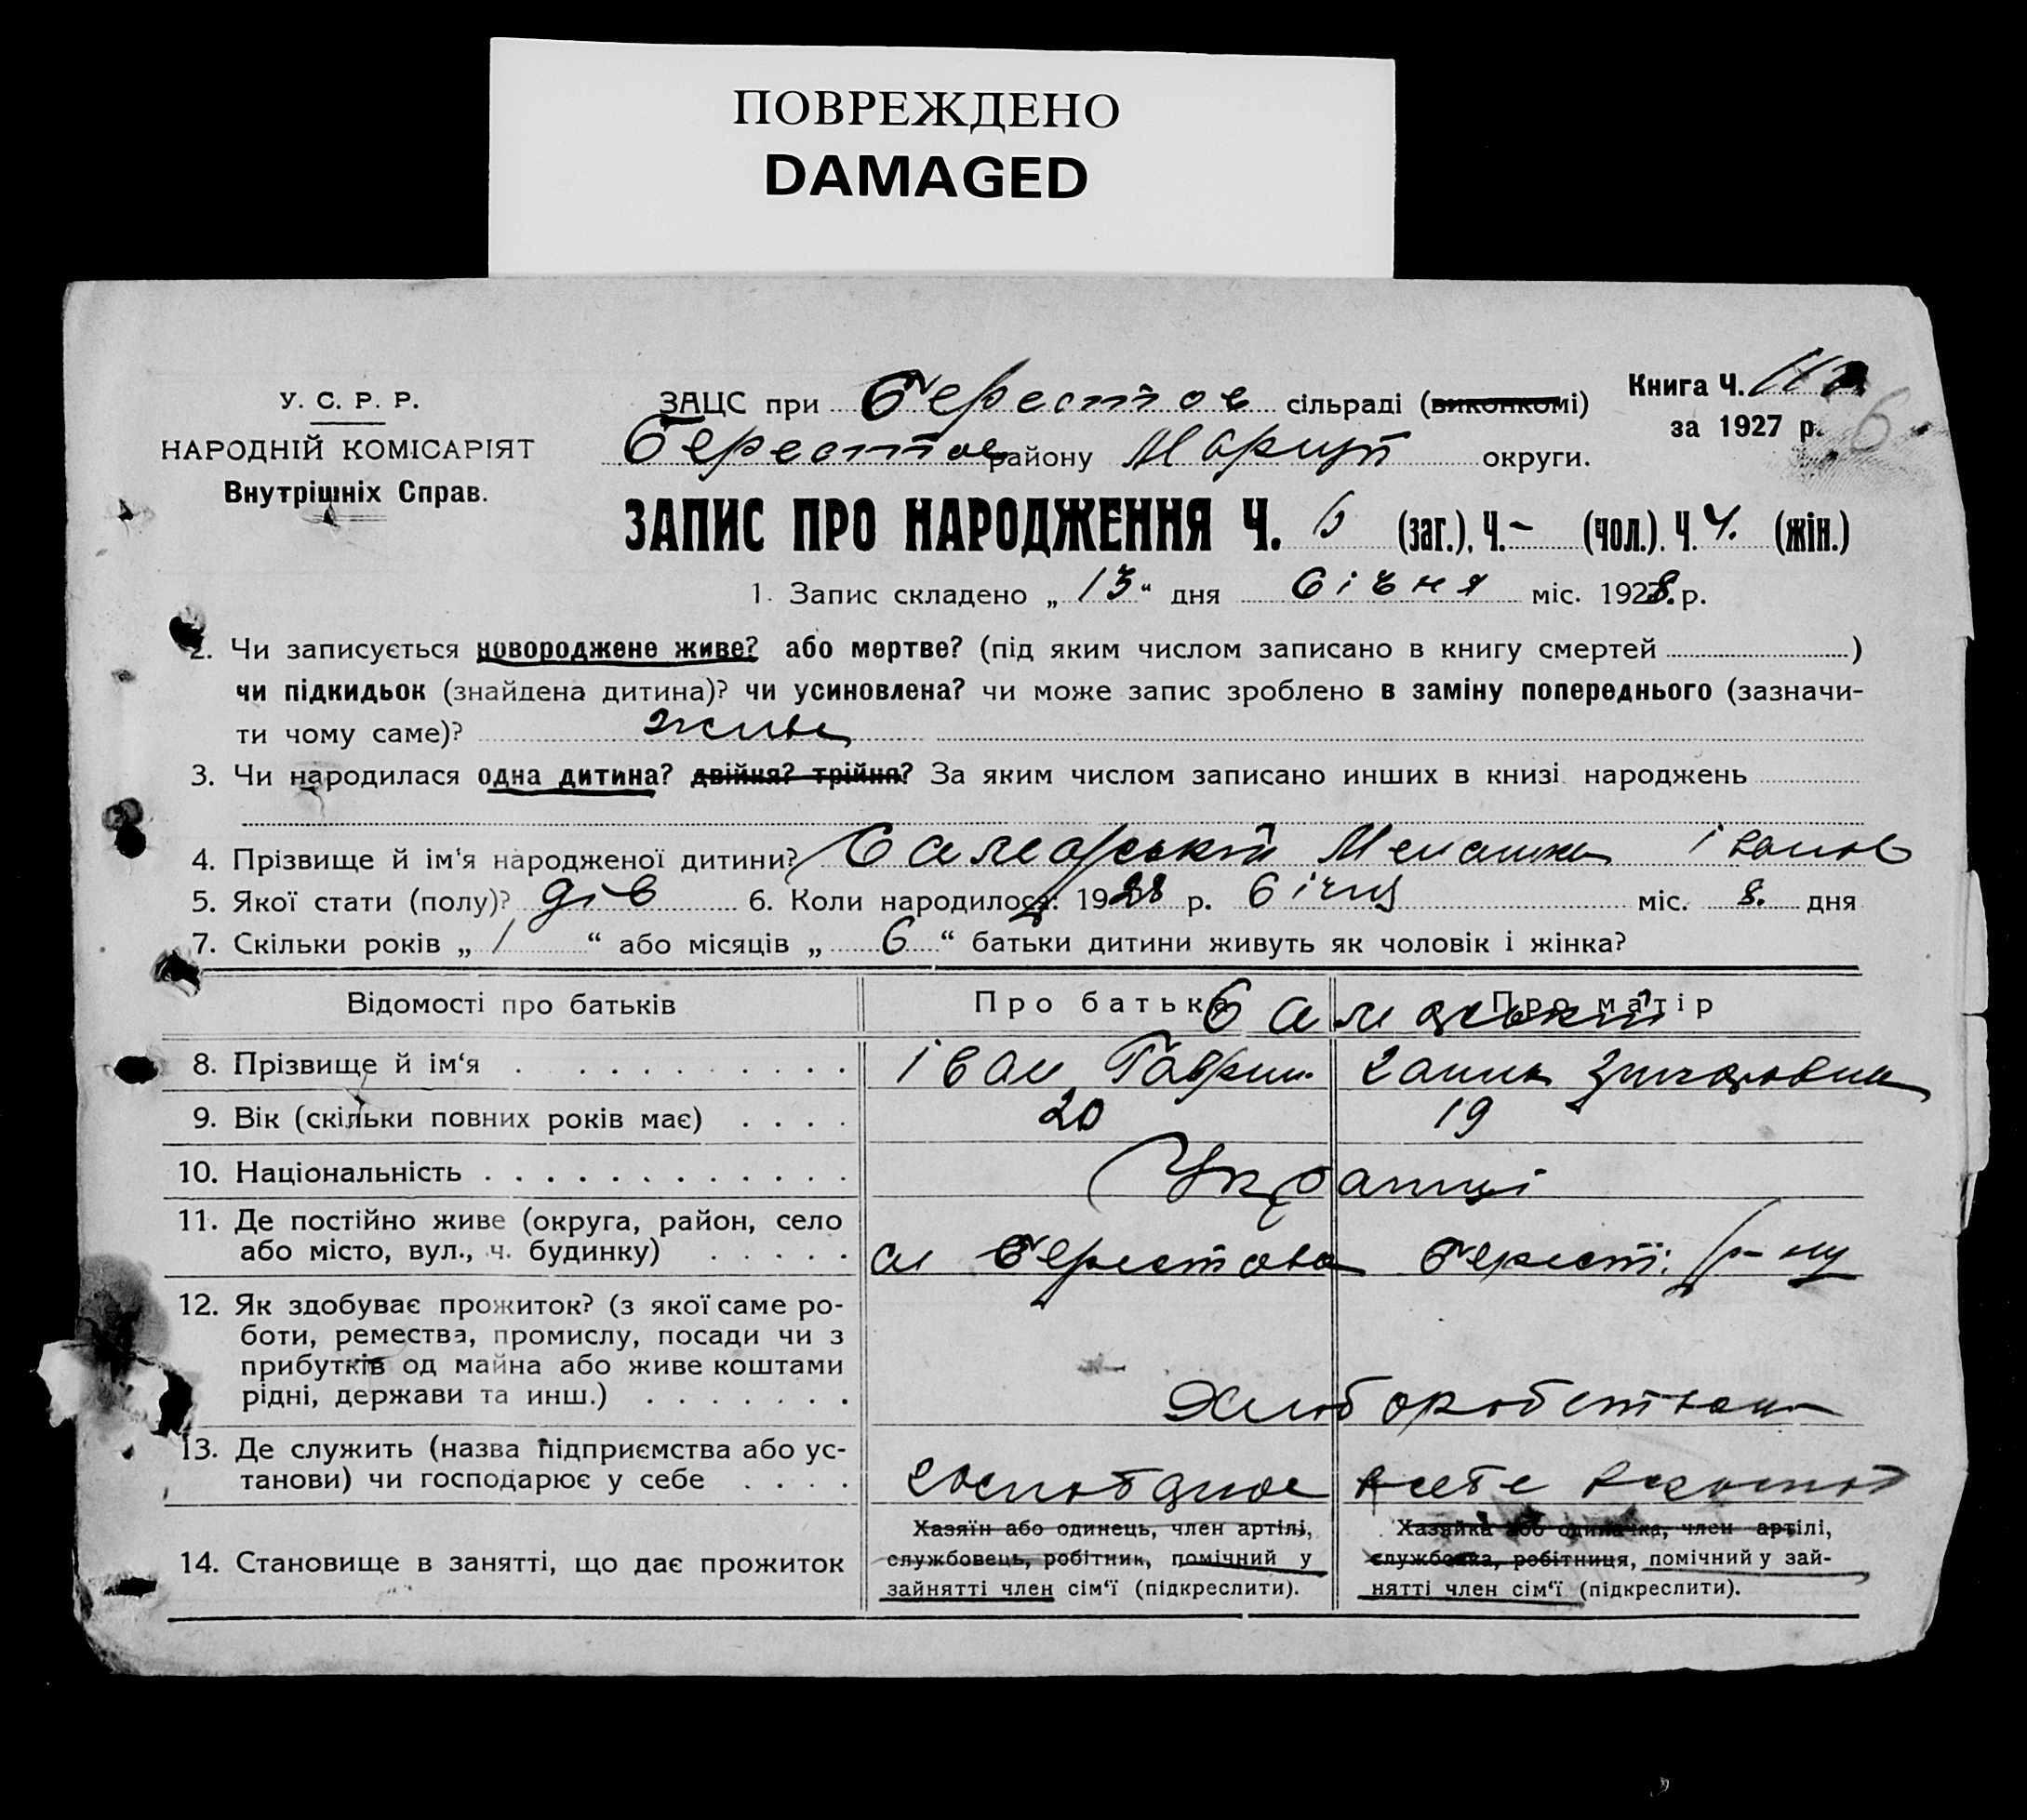 ПОВРЕЖДЕНО
DAMAGED
У. С. Р. Р.
НАРОДНІЙ КОМІСАРІЯТ
Внутрішніх Справ.
ЗАЦС при Берестов сільраді (виконкомі)
Книга Ч.
за 1927 р. 6
Берестов району Маріуп округи.
ЗАПИС ПРО НАРОДЖЕННЯ Ч. 6 (заг.), Ч. – (чол.). Ч. 4. (жін.)
1. Запис складено „ 13 “ дня Січня міс. 1928. р.
2. Чи записується новороджене живе? або мертве? (під яким числом записано в книгу смертей )
чи підкидьок (знайдена дитина)? чи усиновлена? чи може запис зроблено в заміну попереднього (зазначи-
ти чому саме)? живе
3. Чи народилася одна дитина? двійня? трійня? За яким числом записано инших в книзі народжень
4. Прізвище й ім'я народженої дитини? Самарській іванов
5. Якої стати (полу)? дів 6. Коли народилося: 1928 р. Січня міс. 8. дня
7. Скільки років „ 1 “ або місяців „ 6 “ батьки дитини живуть як чоловік і жінка?
Відомості про батьків Про батька Про матір
Самарській
8. Прізвище й ім'я . . . . . . . . . . іван Гаврил. ганна
9. Вік (скільки повних років має) . . . . 20 19
10. Національність . . . . . . . . . . . . . Українці
11. Де постійно живе (округа, район, село
або місто, вул., ч. будинку) . . . . . с Берестова Берест. р-ну
12. Як здобуває прожиток? (з якої саме ро-
боти, ремества, промислу, посади чи з
прибутків од майна або живе коштами
рідні, держави та инш.) . . . . . . . Хліборобством
13. Де служить (назва підприємства або ус-
танови) чи господарює у себе . . . . господарює усебе
14. Становище в занятті, що дає прожиток
Хазяїн або одинець, член артілі,
службовець, робітник, помічний у
зайнятті член сім'ї (підкреслити).
Хазяйка або одиначка, член артілі,
службовка, робітниця, помічний у зай-
нятті член сім'ї (підкреслити).